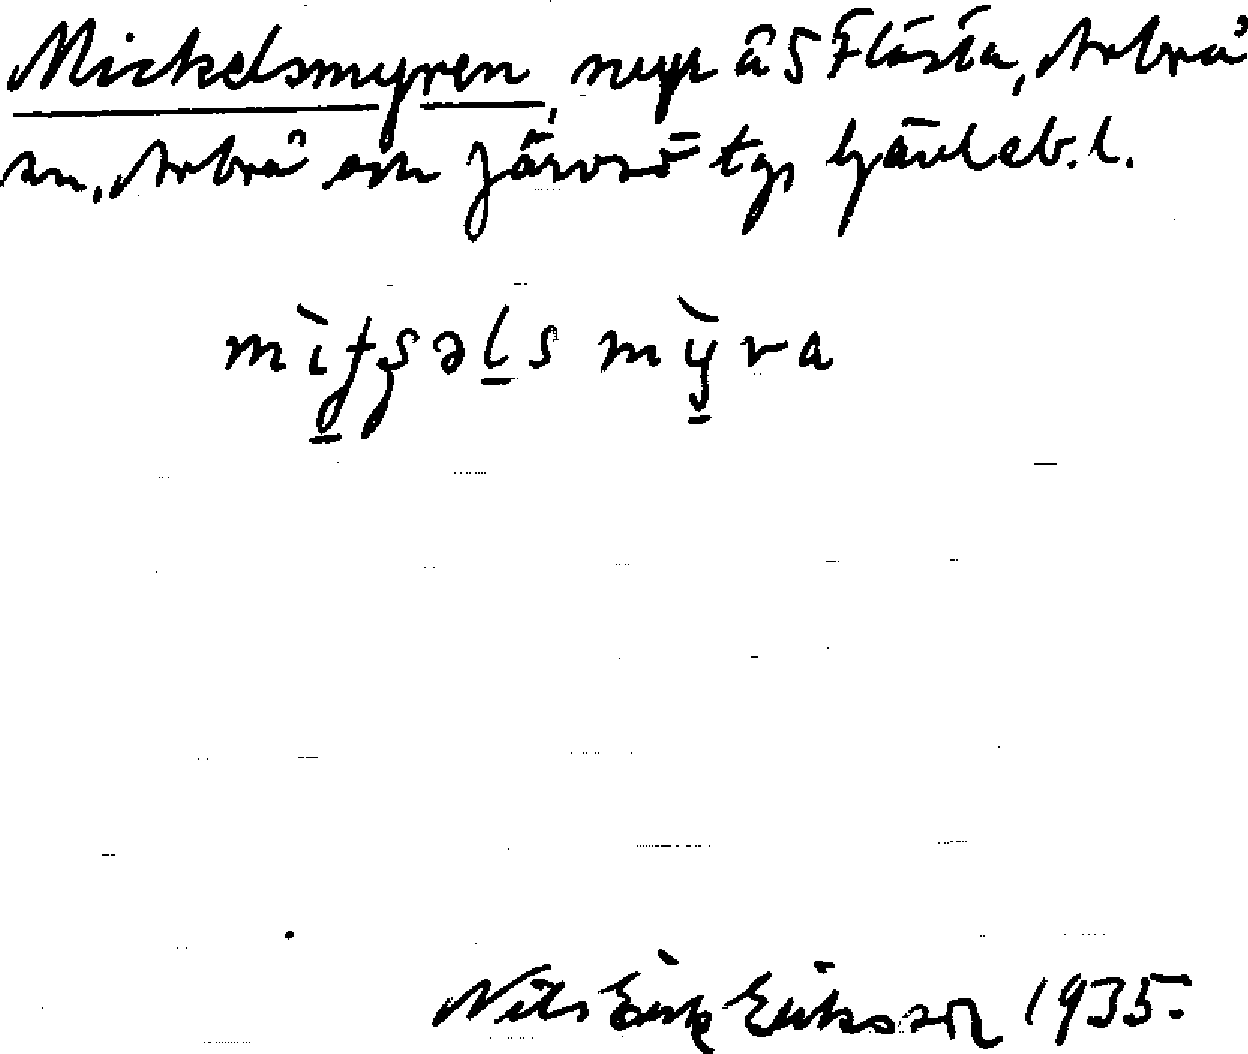 Mickelsmyren, myr å S Flästa, Arbrå
sn, Arbrå och Järvsö tg, Gävleb. l.
mìtʂəls mỳra
Nils Erik Eriksson 1935.